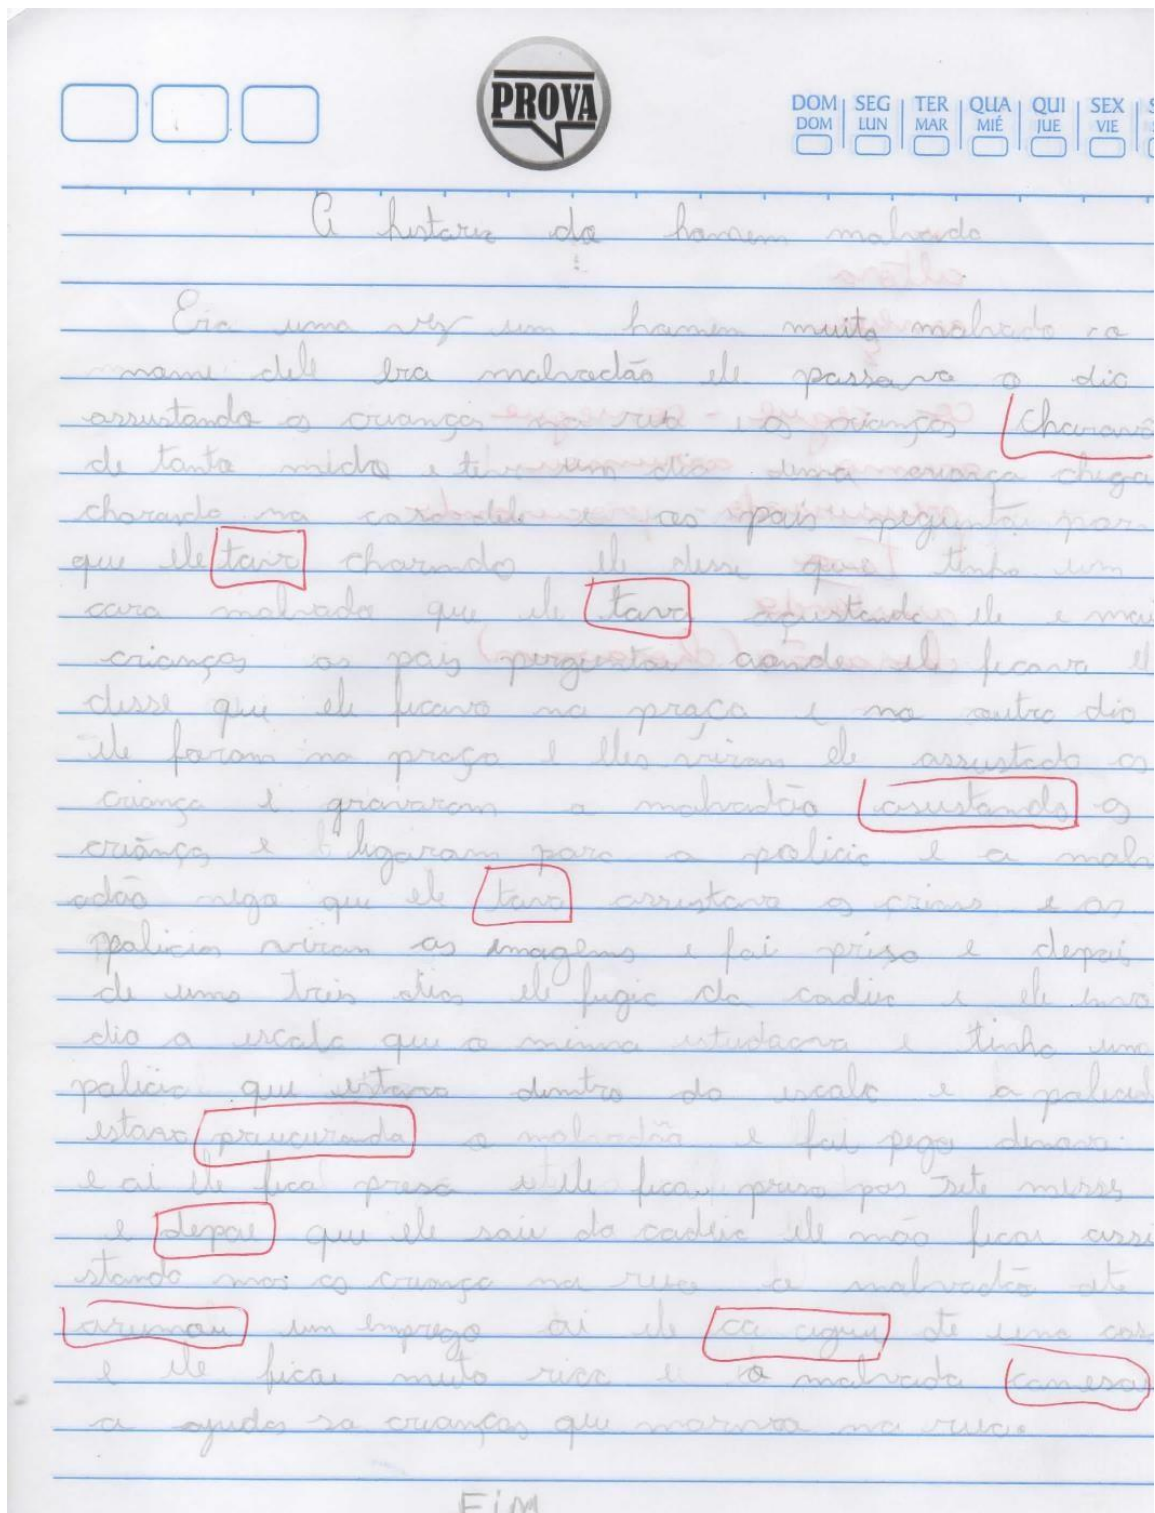 PROVA
DOM SEG TER QUA QUI SEX
DOM LUN MAR MIÉ JUE VIE
A historia do homem malvado
Era uma vez um homem muito malvado e o
nome dele era malvadão ele passava o dia
assustando as crianças na rua e as crianças
de tanto medo e teve um dia uma criança
chorando na casa dele e os pais para
que ele tava chorando ele disse que tinha um
cara malvado que ele tava assustando ele e
crianças os pais aonde ele ficava
disse que ele ficava na praça e no outro dia
ele foram na praça e eles viram ele assustado as
criança e gravaram o malvadão asustando as
criança e ligaram para a policia e o malv
adão nego que ele tava assustava as e os
policia viram as imagens e foi e depois
de uns dias ele fugio da cadeia e ele inva
dio a escola que a estudava e tinha uma
policia que estava dentro da escola e a
estava o malvadão e foi pego
e ai ele fica preso e ele ficou preso por sete
e que ele saiu da cadeia ele não ficou assu
stando mas as criança na rua o malvadão até
arumou um emprego ai ele te uma
e ele ficou muito rico e o malvado
a ajuda as crianças que na rua.
FiM